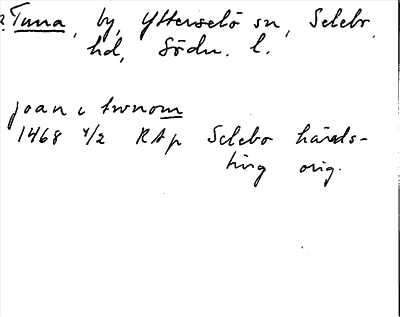 Tuna, by, Ytterselö sn, Selebo
hd, Södm. l.
joan i twnom
1468 4/2 RAp Selebo härads-
ting orig.